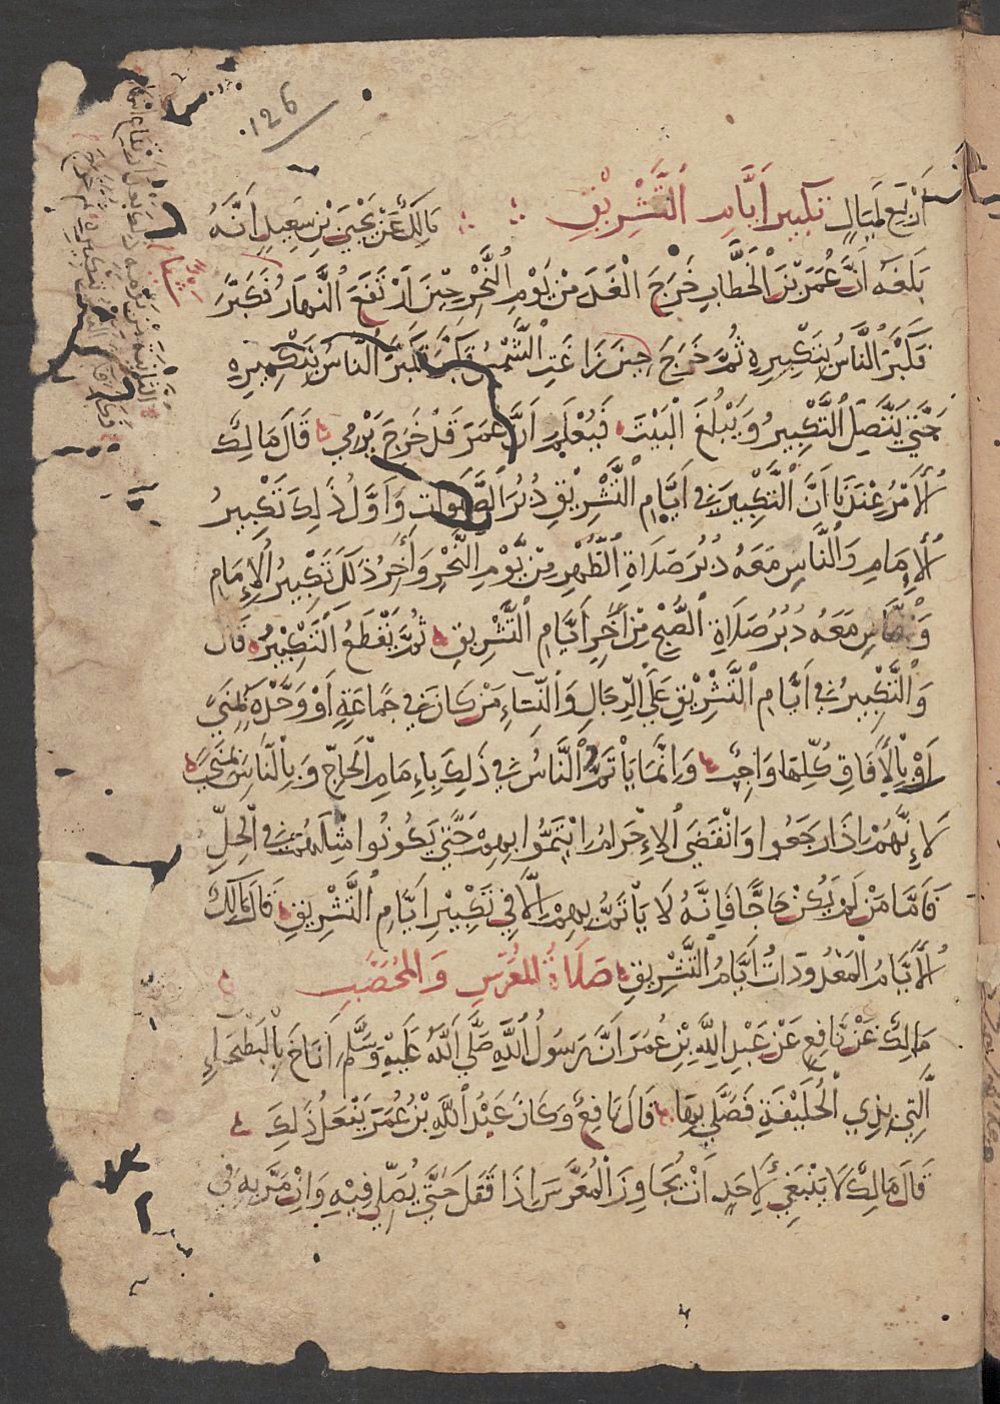 126
أَرْبَعَ لَيَالٍ تكبير أَيَّامِ ٱلتَّشْرِيْقِ مَالِكٌ عَنْ يَحْيَى بْنِ سَعِيدٍ اَنَّهُ
بَلَغَهُ اَنَّ عُمَرَ بْنَ الْخَطَّابِ خَرَجَ الْغَدَ مِنْ يَوْمِ النَّحْرِ حِيْنَ اَرْتَفَعَ النَّهَارُ فَكَبَّرَ
فَكَبَّرَ النَّاسُ بِتَكْبِيرِهِ ثُمَّ خَرَجَ حِينَ زَاغَتِ الشَّمْسُ فَكَبَّرَ فَكَبَّرَ النَّاسُ بِتَكْبِيرِهِ
حَتَّى يَتَّصِلَ التَّكْبِيرُ وَيَبْلُغَ الْبَيْتَ فَيُعْلَمُ اَنَّ عُمَرَ قَدْ خَرَجَ يَرْمِي قَالَ مَالِكٌ
اُلْاَمْرُ عِنْدَنَا اَنَّ التَّكْبِيرَ فِي اَيَّامِ التَّشْرِيْقِ دُبُرَ الصَّلَوَاتِ وَاَوَّلُ ذٰلِكَ تَكْبِيرُ
اُلْاِمَامِ وَالنَّاسِ مَعَهُ دُبُرَ صَلَاةِ الظُّهْرِ مِنْ يَّوْمِ النَّحْرِ وَاٰخِرُ ذٰلِكَ تَكْبِيرُ الْاِمَامِ
وَالنَّاسِ مَعَهُ دُبُرَ صَلَاةِ الصُّبْحِ مِنْ اٰخِرِ اَيَّامِ التَّشْرِيْقِ ثُمَّ يَقْطَعُ التَّكْبِيْرَ قَالَ
وَالتَّكْبِيرُ فِي اَيَّامِ التَّشْرِيْقِ عَلَى الرِّجَالِ وَالنِّسَاءِ مَنْ كَانَ فِي جَمَاعَةٍ أَوْ وَحْدَهُ بِمِنًى
اَوْ بِالْاٰفَاقِ كُلِّهَا وَاجِبٌ وَاِنَّمَا يَأْتَمُّ النَّاسُ فِي ذٰلِكَ بِاِمَامِ الْحَاجِّ وَبِالنَّاسِ بِمِنًى
لِاَنَّهُمْ اِذَا رَجَعُوا وَانْقَضَى الْاِحْرَامُ ائْتَمُّوا بِهِمْ حَتَّى يَكُونُوا مِثْلَهُمْ فِي الْحِلِّ
فَاَمَّا مَنْ لَمْ يَكُنْ حَاجًّا فَاِنَّهُ لَا يَأْتَمُّ بِهِمْ اِلَّا فِي تَكْبِيْرِ اَيَّامِ التَّشْرِيقِ قَالَ مَالِكٌ
اُلْاَيَّامُ الْمَعْدُودَاتُ اَيَّامُ التَّشْرِيقِ صَلَاةُ المُعَرَّسِ وَالمُحَصَّبِ
مَالِكٌ عَنْ نَافِعٍ عَنْ عَبْدِ اللَّهِ بْنِ عُمَرَ اَنَّ رَسُولَ اللَّهِ صَلَّى اللَّهُ عَلَيْهِ وَسَلَّمَ اَنَاخَ بِالْبَطْحَاءِ
الَّتِي بِذِي الْحُلَيْفَةِ فَصَلَّى بِهَا قَالَ نَافِعٌ وَكَانَ عَبْدُ اللَّهِ بْنُ عُمَرَ يَفْعَلُ ذٰلِكَ
قَالَ مَالِكٌ لَا يَنْبَغِي لِاَحَدٍ اَنْ يُّجَاوِزَ الْمُعَرَّسَ اِذَا قَفَلَ حَتَّى يُصَلِّيَ فِيْهِ وَاِنْ مَرَّ بِهِ فِي